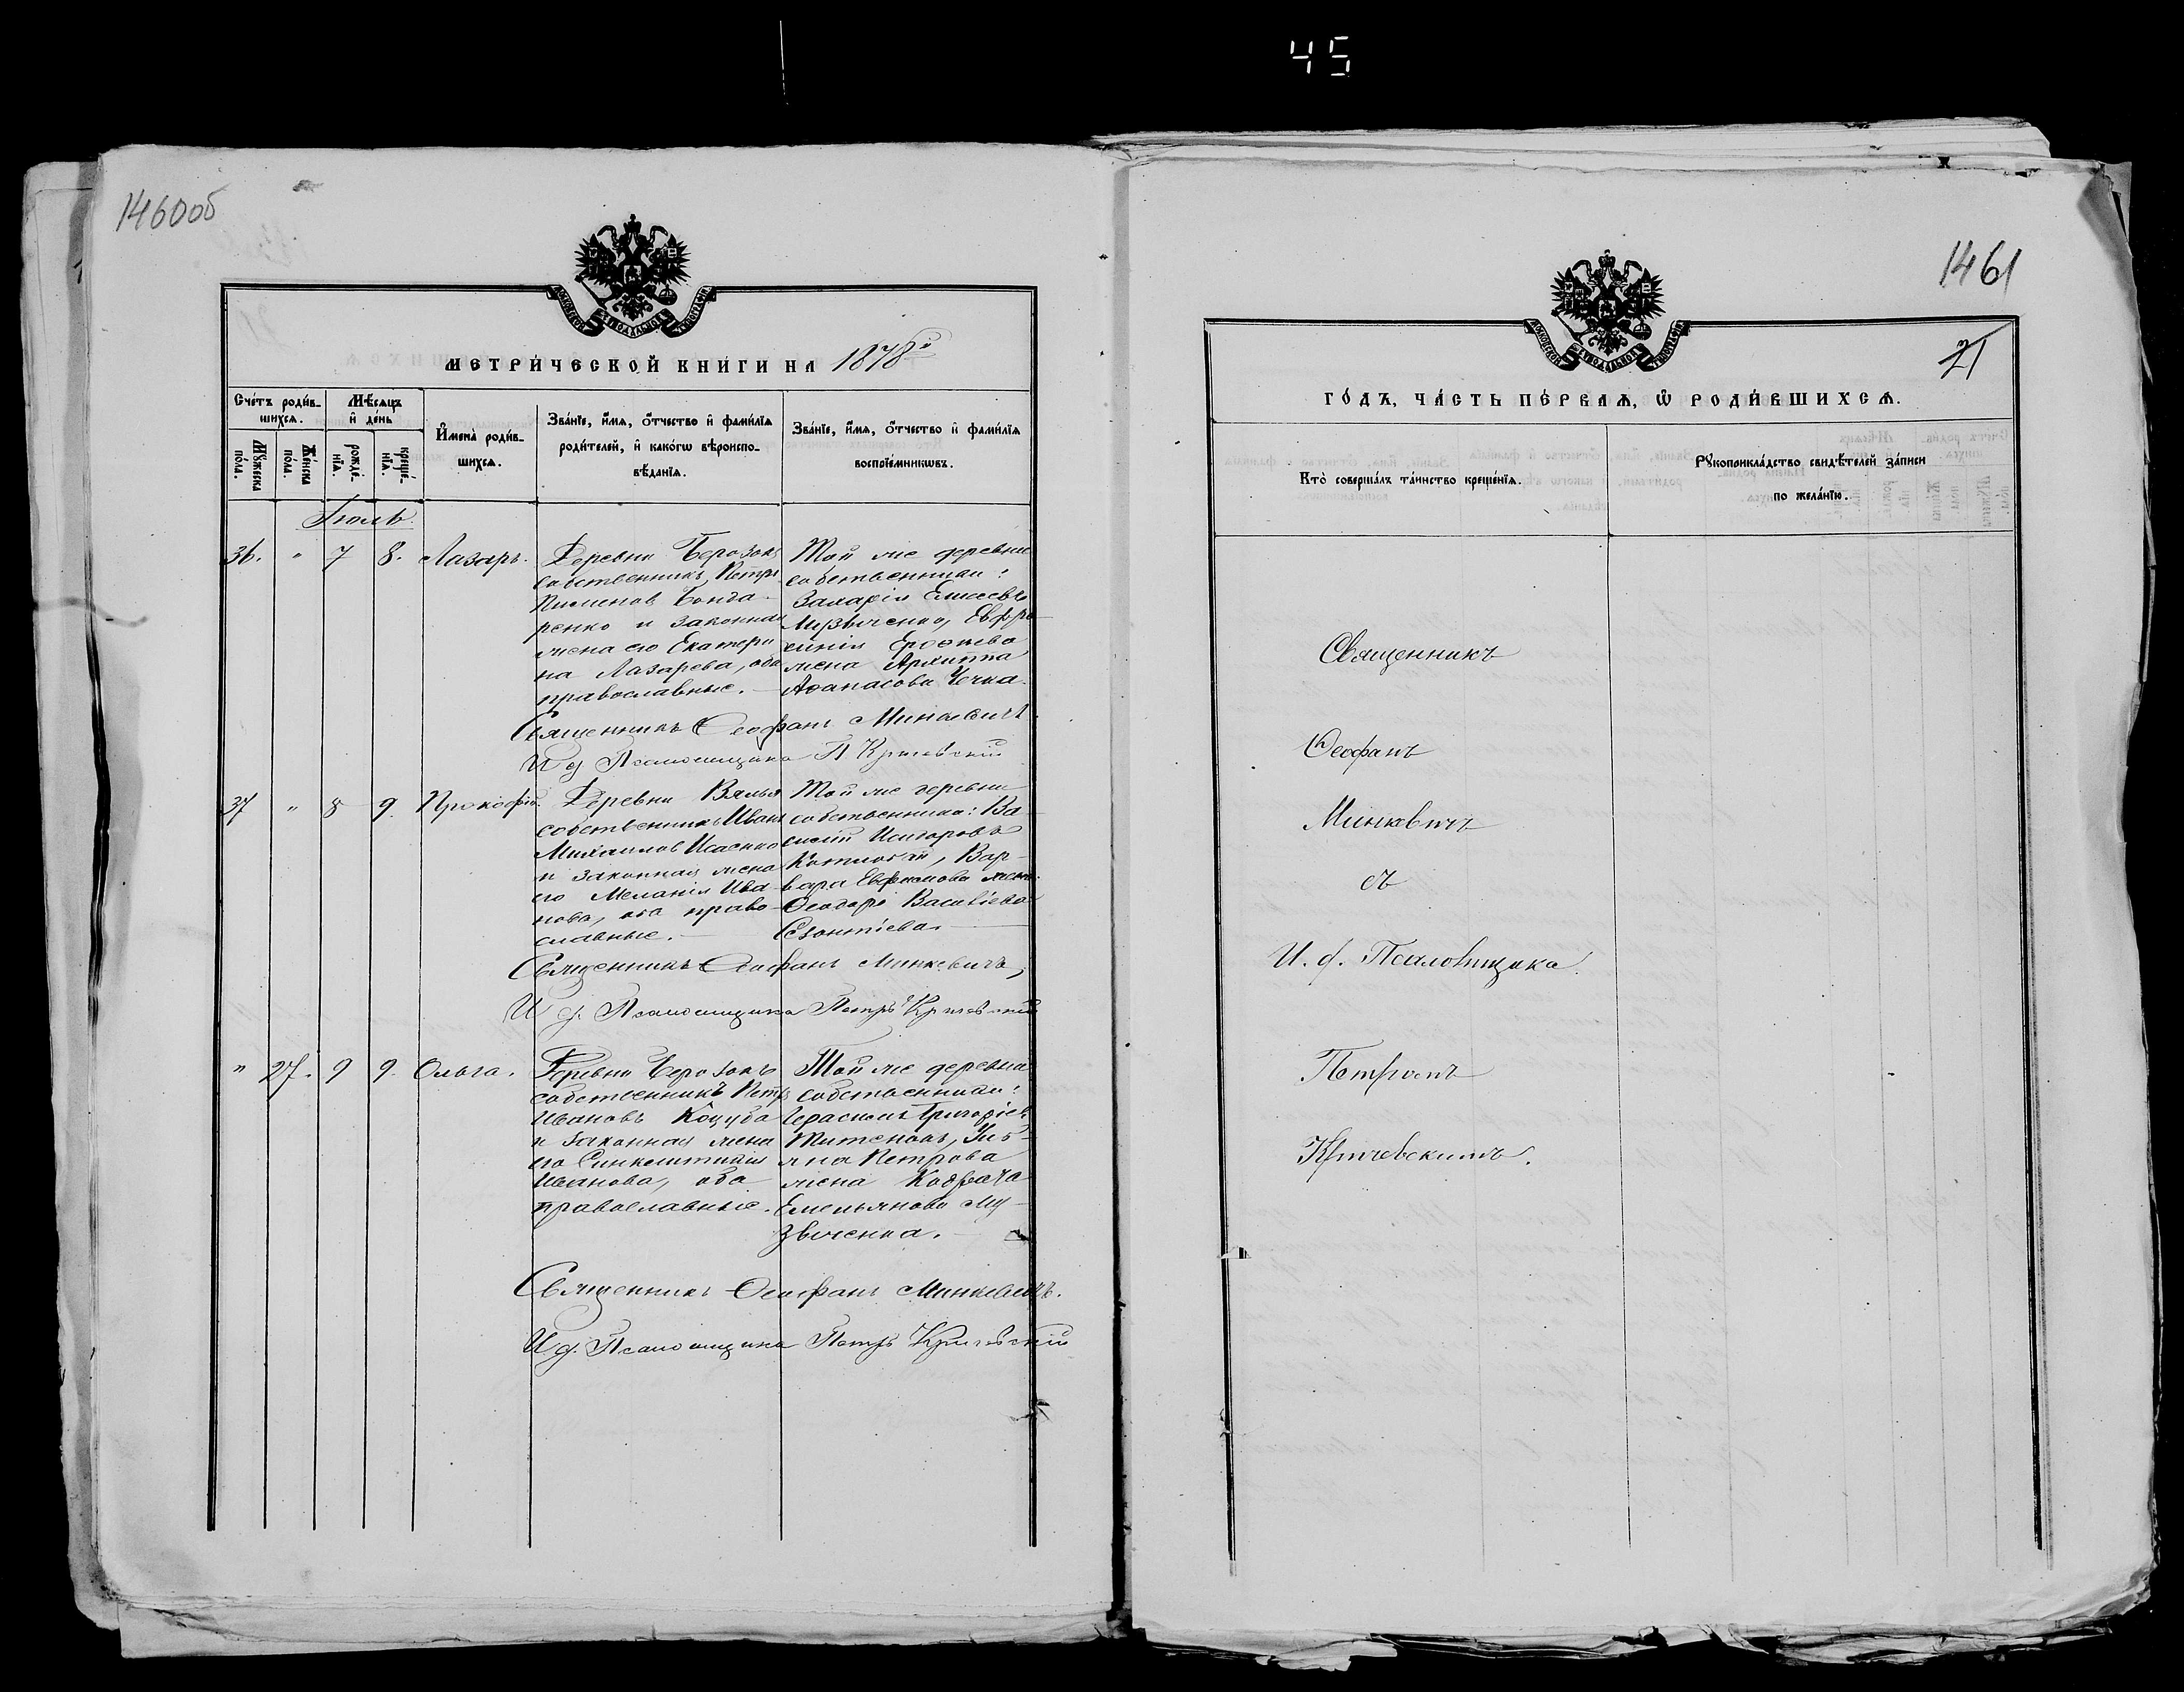 45
1460об
МЕТРИ́ЧЕСКОЙ КНИ́ГИ НА 1878й
Сче́тъ роди́в-
шихся.
Мѣ́сяцъ
и҆ де́нь
Мꙋ́жеска
по́ла.
Же́нска
пола.
рожде́-
нїѧ.
креще́-
нїѧ.
И҆мена̀ роди́в-
шихсѧ.
Зва́нїе, и҆́мѧ, ѻ҆́тчество и҆ фами́лїѧ
роди́телей, и҆ како́гѡ вѣроиспо-
вѣ́данїѧ.
Зва́нїе, и҆́мѧ, ѻ҆́тчество и҆ фами́лїѧ
воспрїе́мникѡвъ.
Іюль.
36. " 7 8. Лазарь.
Деревни Березокъ
собственникъ Петръ
Пименовъ Бонда-
ренко и законная
жена его Екатери
на Лазарева, оба
православные.
Той же деревни
собственники:
Захарія Елисеевъ
Музыченко, Евфро-
синія
жена Архиппа
Аѳанасова
Священникъ Ѳеофанъ Минкевичъ.
И д Псаломщика П Кричевскій
37 " 8 9. Прокофій.
Деревни
собственникъ Иванъ
Михаиловъ Исаенко
и законная жена
его Меланія Ива-
нова, оба право-
славные.
Той же деревни
собственники: Ва-
силій Исидоровъ
Вар-
вара Евфимова жена
Ѳеодора Василіева
Леонтіева.
Священникъ Ѳеофанъ Минкевичъ,
И д. Псаломщика Петръ Кричевскій
" 27. 9 9. Ольга.
Деревни Березокъ
собственникъ Петръ
Ивановъ Коцуба
и законная жена
его Синклитикія
Иванова, оба
православные.
Той же деревни
собственники:
Герасимъ Григоріевъ
Титенокъ, Улі-
яна Петрова
жена Кодрата
Емельянова Му-
зыченка.
Священникъ Ѳеофанъ Минкевичъ.
И д. Псаломщика Петръ Кричевскій
1461
21
ГО́ДЪ, ЧА́СТЬ ПЕ́РВАѦ, Ѡ҆ РОДИ́ВШИХСѦ.
Кто̀ соверша́лъ та́инство креще́нїѧ.
Рꙋкоприкла́дство свидѣ́телей за́писи
по жела́нїю.
Священникъ
Ѳеофанъ
Минкевичъ
съ
И. д. Псаломщика
Петромъ
Кричевскимъ.